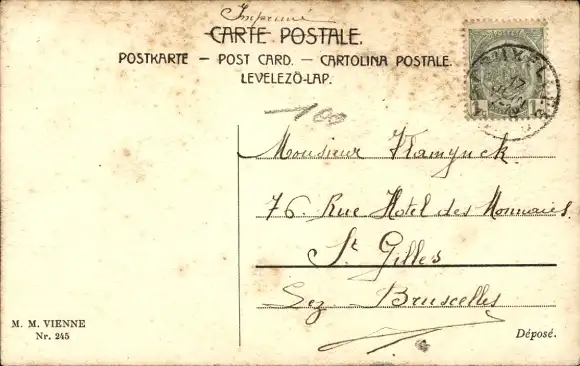 Imprimé
CARTE POSTALE.
POSTKARTE – POST CARD. – CARTOLINA POSTALE.
LEVELEZŐ-LAP.
100
Monsieur Klamynck.
76. Rue Hotel des Monnaies
St Gilles
Lez Bruxelles
M. M. VIENNE
Nr. 245
Déposé.